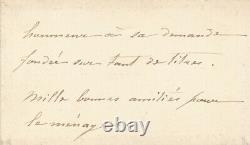 honneur à sa demande
fondée sur tant de titres.
Mille bonnes amitiés pour
le ménage
ebth.com